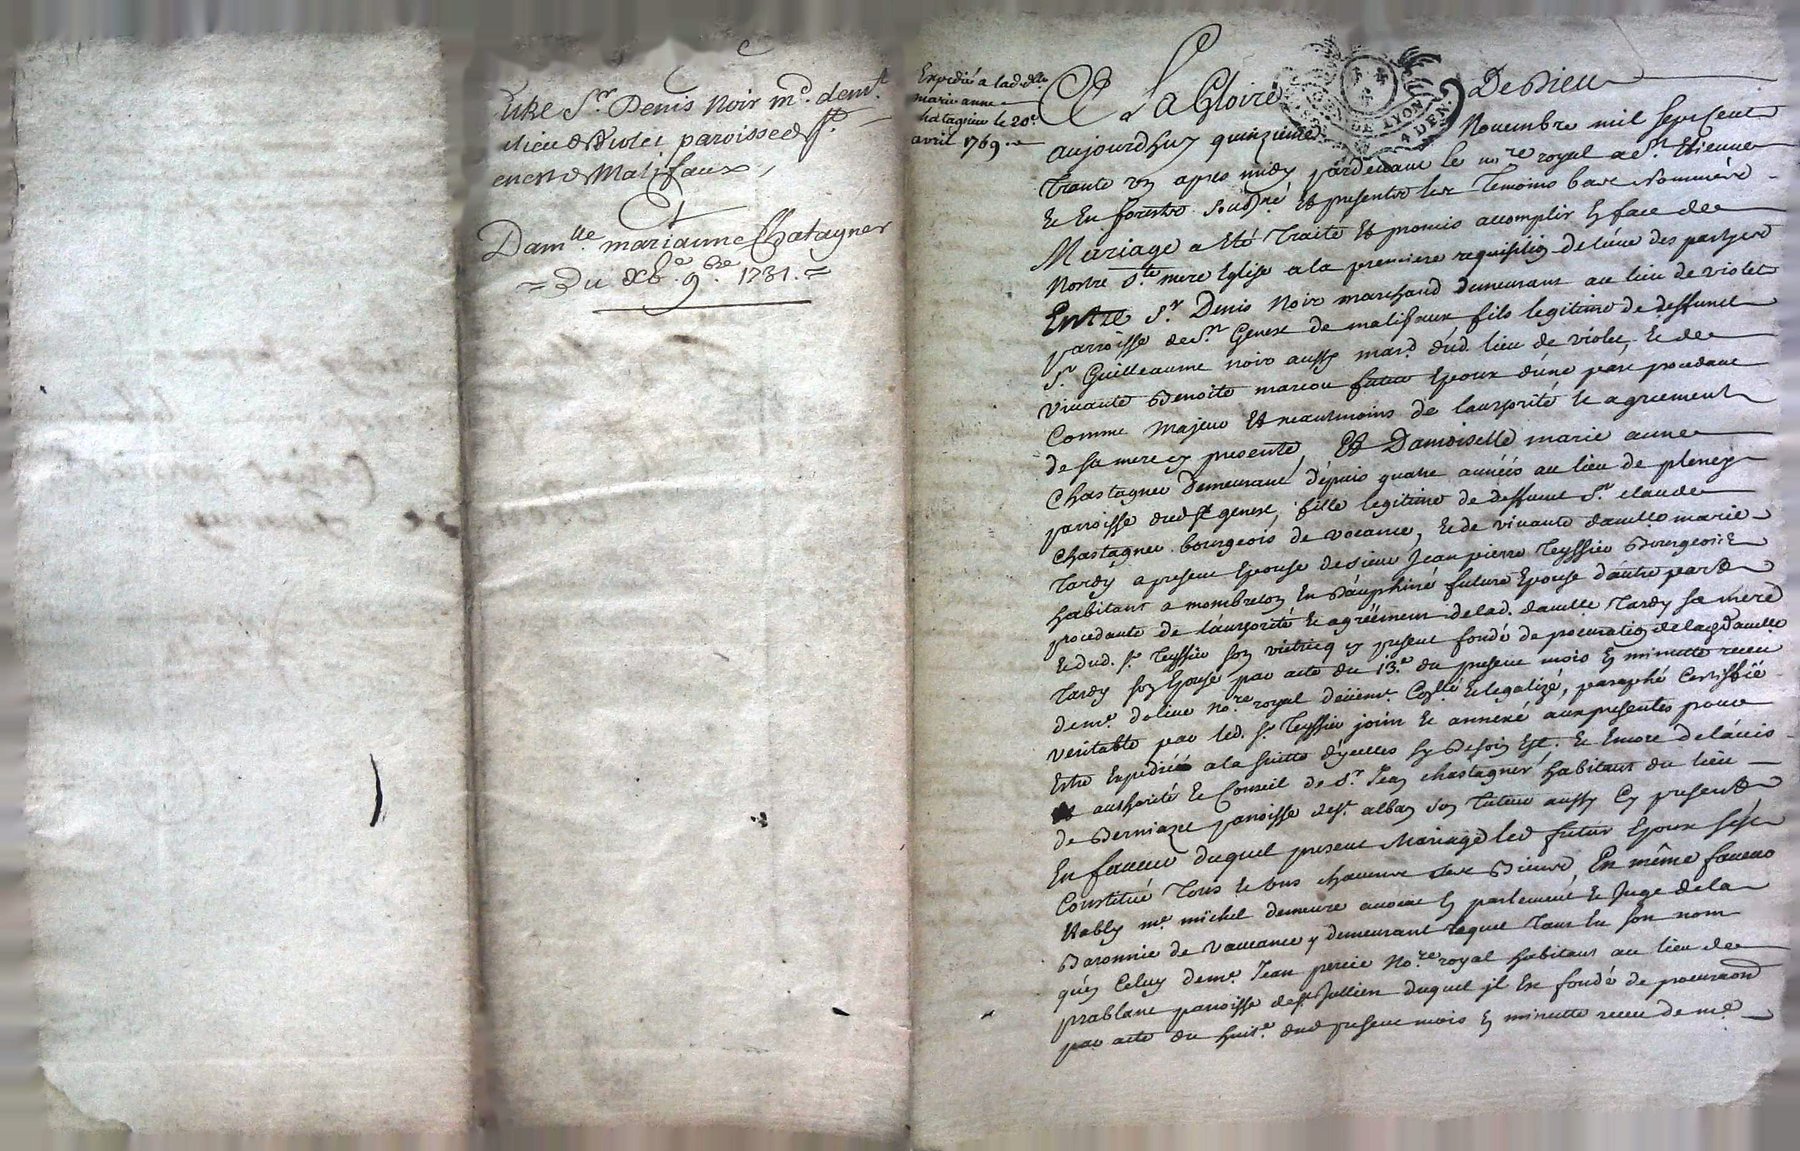 Entre Sr. Denis Noir md. demt.
au lieu de Violet paroisse de St.
Genest de Malifaux,
Et
Damlle. marianne Chatagner
= Du xve. 9bre 1731. =
Expedié a lad. dlle
marie anne
chatagnier le 20e
avril 1769.
A La Gloire De Dieu
DE LYON
4 DEN.
aujourdhuy quinzieme Novembre mil sept cent
trante un apres midy pardevant le nre. royal a St. Etienne
en forests soubné et presents les temoins bas nommés
Mariage a été traité et promis accomplir en face de
Nostre Ste. mere Eglise a la premiere requisition de l'une des partyes
Entre Sr. Denis Noir marchand demeurant au lieu de violet
parroisse de St. Genest de malifaux fils legitime de deffunct
Sr. Guilleaume noir aussy mard. dud. lieu de violet, et de
vivante Benoite marcou futur Epoux d'une part procedant
Comme Majeur et neantmoins de l'authorité et agreement
de sa mere cy presente, Et Damoiselle marie anne
Chastagner demeurant depuis quatre années au lieu de pleney
parroisse dud. St genest, fille legitime de deffunt Sr. claude
Chastagner bourgeois de vocance, et de vivante damlle marie
Tardy a present Epouse de sieur Jean pierre Teyssier Bourgeois
habitant a mombreton En Dauphiné future Epouse d'autre part
procedante de l'authorité et agréement de lad. damlle Tardy sa mere
et dud. Sr. Teyssier son cy present fondé de procuration de lad. Damlle
Tardy son Epouse par acte du 13e. du present mois en minutte receu
de me. dolive nore. royal deüemt. Collé et legalizé, paraphé Certiffié
veritable par led. Sr. Teyssier joint et annexé aux presentes pour
Estre Expedié a la suitte d'ycelles sy Besoin Est. et Encore de l'avis
authorité et Conseil de Sr. Jean chastagner habitant du lieu
de Berniaze parroisse de St. alban son tuteur aussy Cy present
En faveur duquel present Mariage led futur Epoux s'est
Constitué tous et uns chacuns ses Biens, En même faveur
Etably me. michel demeure avocat en parlement et Juge de la
Baronnie de Vaucance y demeurant lequel tant En son nom
qu'en Celuy de me. Jean percie Nore. royal habitant au lieu de
prablanc parroisse de St. Jullien duquel jl Est fondé de procuraon
par acte du huite. du present mois en minutte receu de me.